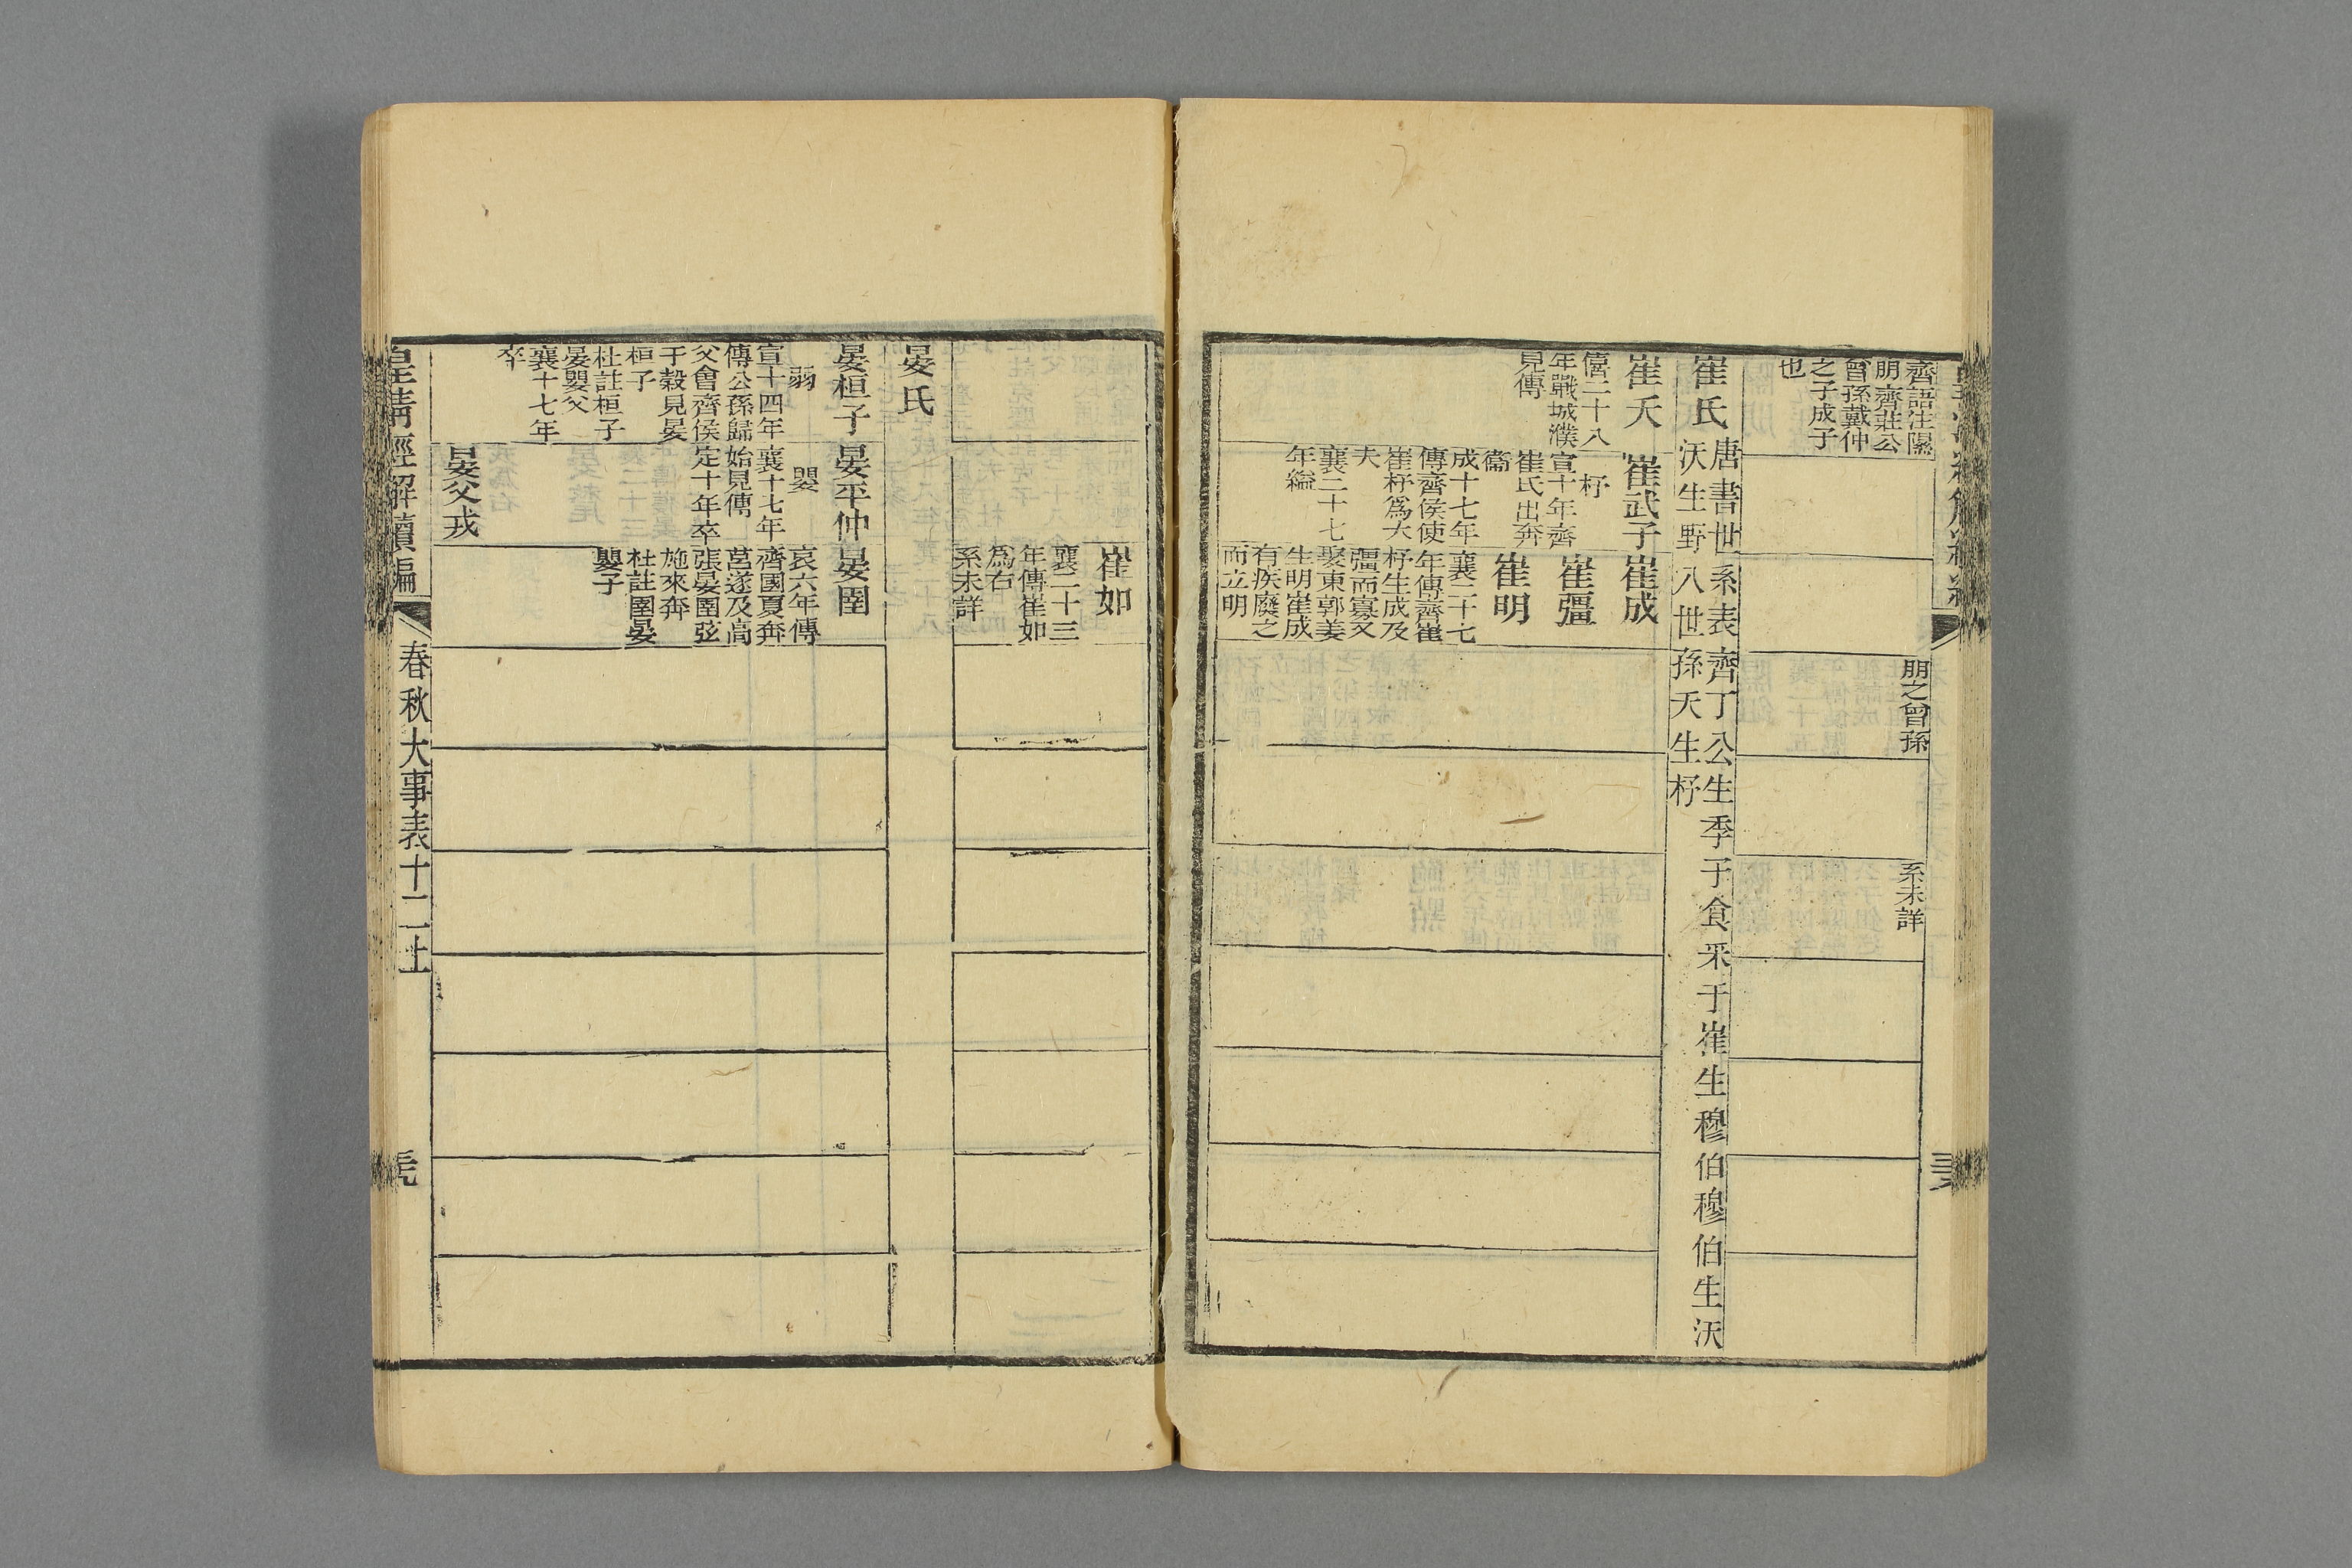 齊語注隰
朋齊莊公
曾孫戴仲
之子成子
也
朋之曾孫
系未詳
崔氏
唐書世系表齊丁公生季子食采于崔生穆伯穆伯生沃
沃生野八世孫夭生杼
崔夭
僖二十八
年戰城濮
見傳
崔武子
杼
宣十年齊
崔氏出奔
衞
成十七年
傳齊侯使
崔杼爲大
夫
襄二十七
年縊
崔成
崔彊
崔明
襄二十七
年傳齊崔
杼生成及
彊而寡又
娶東郭姜
生明崔成
有疾廢之
而立明
崔如
襄二十三
年傳崔如
爲右
系未詳
晏氏
晏桓子
弱
宣十四年
傳公孫歸
父會齊侯
于穀見晏
桓子
杜註桓子
晏嬰父
襄十七年
卒
晏平仲
嬰
襄十七年
始見傳
定十年卒
晏圉
哀六年傳
齊國夏奔
莒遂及高
張晏圉弦
施來奔
杜註圉晏
嬰子
晏父戎
皇淸經解續編
春秋大事表十二上